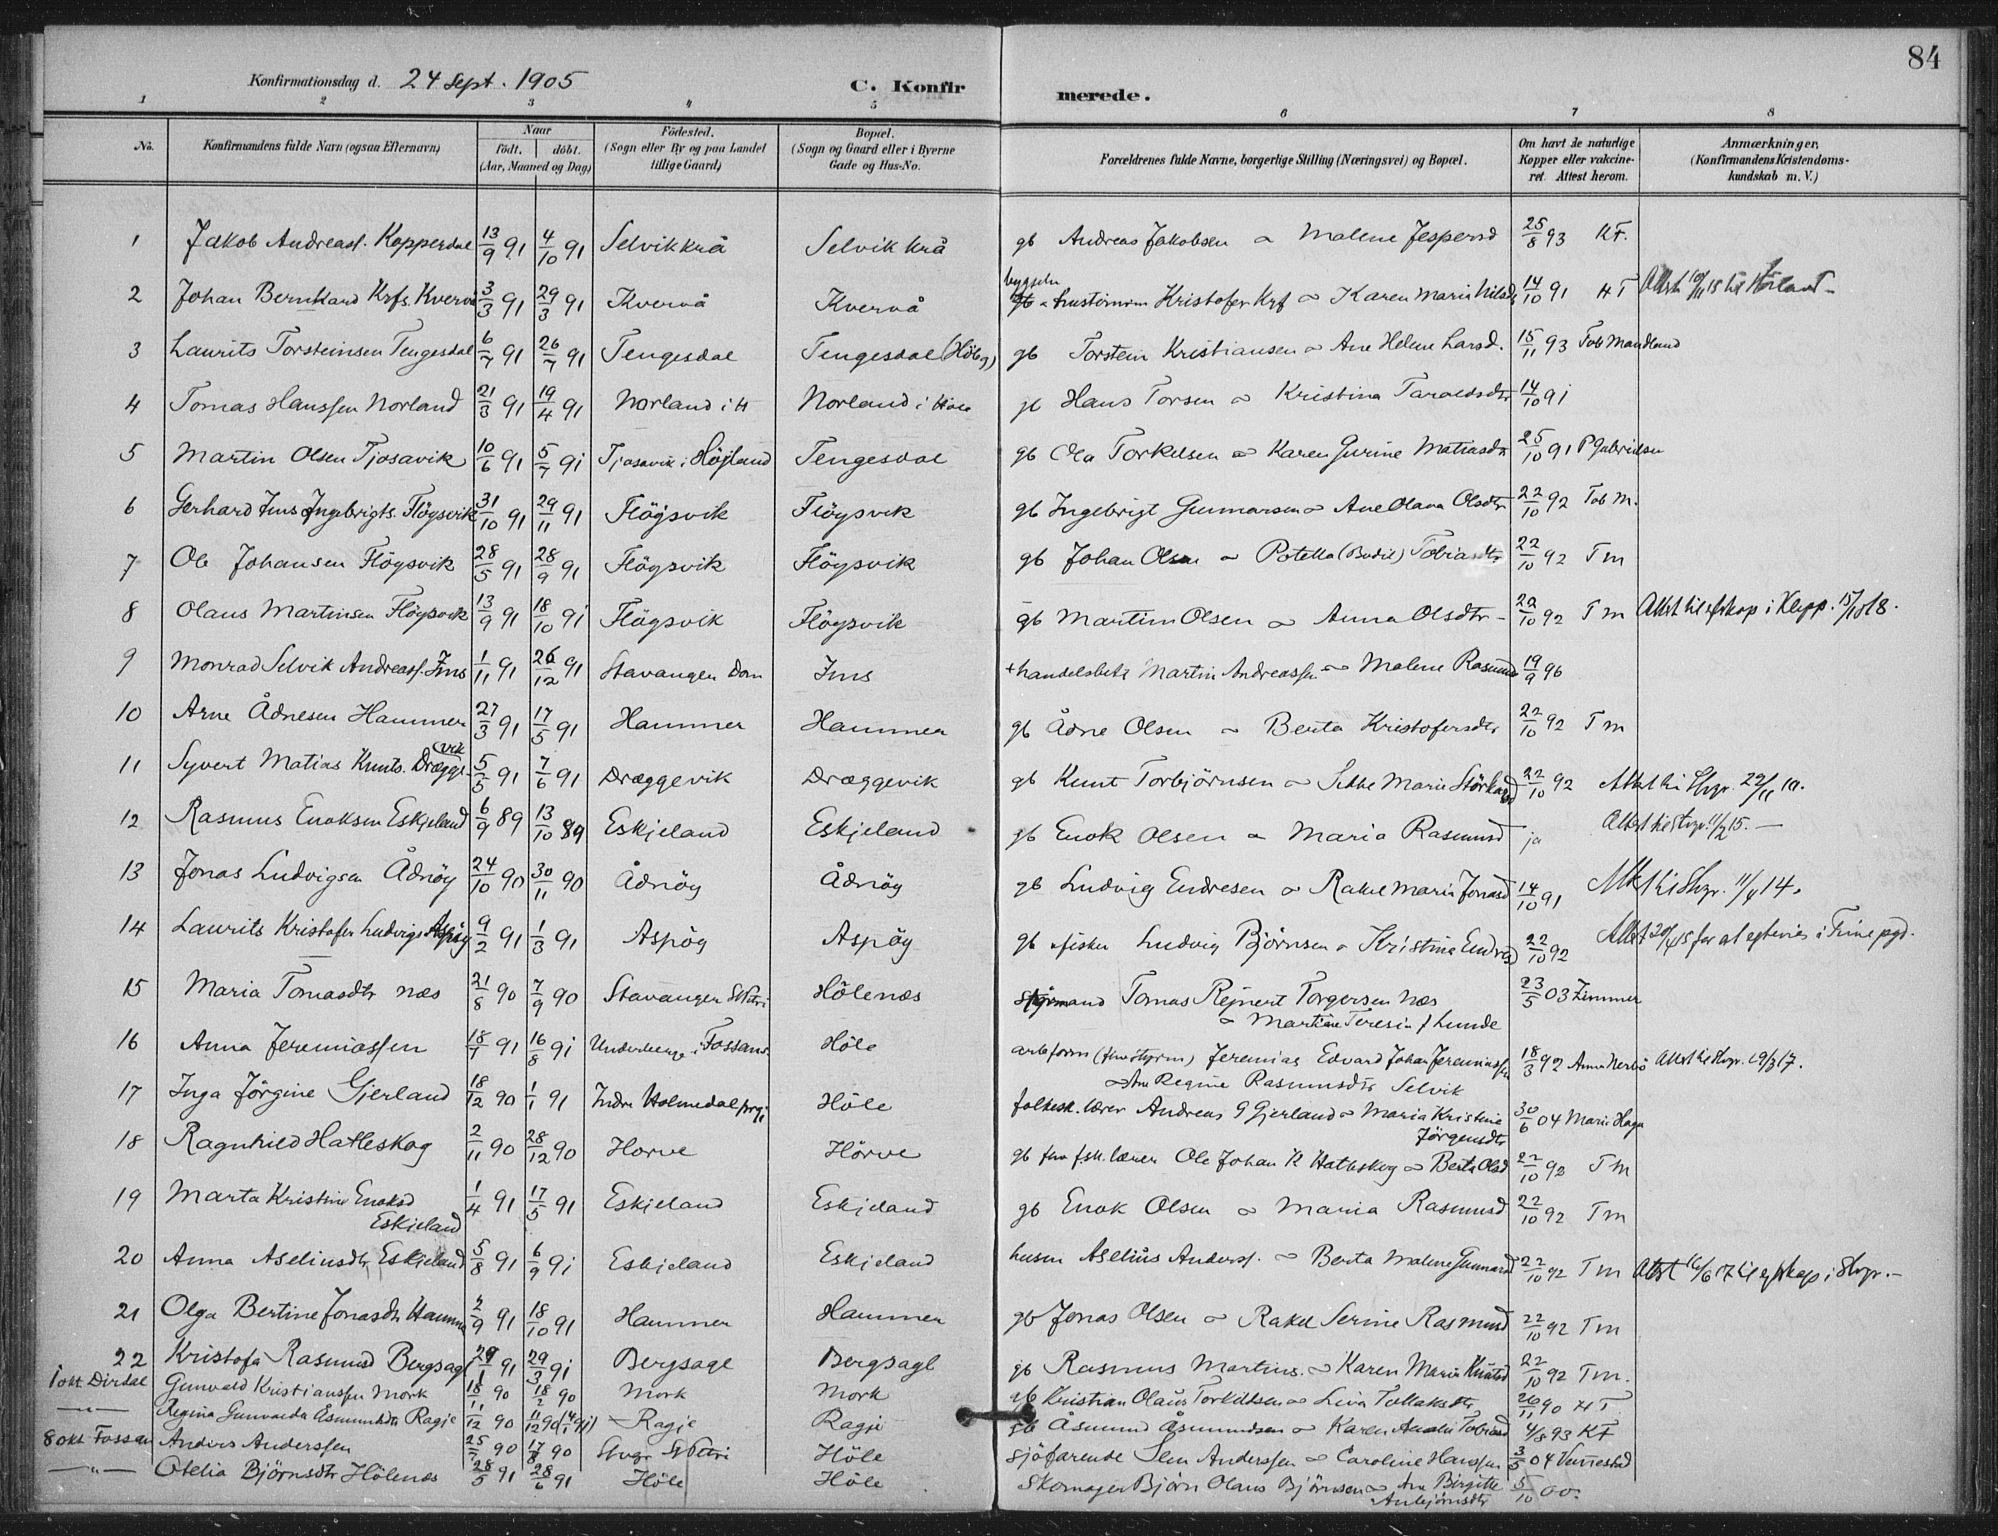 84
Konfirmationsdag d. 24 Sept. 1905 C. Konfir merede.
1 2 3 4 5 6 7 8
No. Konfirmandens fulde Navn (ogsaa Efternavn) Naar født. døbt. (Aar, Maaned og Dag) Födested. (Sogn eller By og paa Landet tillige Gaard) Bopæl. (Sogn og Gaard eller i Byerne Gade og Hus-No. Forældrenes fulde Navne, borgerlige Stilling (Næringsvei) og Bopæl. Om havt de naturlige Kopper eller vakcineret. Attest herom. Anmærkninger, (Konfirmandens Kristendomskundskab m. V.)
1 Jakob Andreasf. Kopperdal 13/9 91 4/10 91 Selvikkrå Selvik krå gb Andreas Jakobsen ~ Malene Jespersd 25/8 93 KF.
2 Johan Bernhard Krfs. Kvervå 3/3 91 29/3 91 Kvervå Kvervå Kristofer Krf ~ Karen Maria Nilsd 14/10 91 HT
3 Laurits Torsteinsen Tengesdal 6/7 91 26/7 91 Tengesdal Tengesdal gb Torstein Kristiansen ~ Ane Helene Larsd. 15/11 93 Tob Mandland
4 Tomas Hanssen Norland 21/3 91 19/4 91 Norland i H Norland i Høle gb Hans Torsen ~ Kristina 14/10 91
5 Martin Olsen Tjosavik 10/6 91 5/7 91 Tjosavik i Höjland Tengesdal gb Ola Torkelsen ~ Karen Gurine Matiasdtr 25/10 91 P Gabrielsen
6 Gerhard Ims Ingebrigts. Flögsvik 31/10 91 29/11 91 Flögsvik Flögsvik gb Ingebrigt Gunnarsen ~ Ane Olava Olsdtr 22/10 92 Tob M.
7 Ole Johansen Flögsvik 28/5 91 28/9 91 Flögsvik Flögsvik gb Johan Olsen ~ Potella (Bodil) Tobiasdtr 22/10 92 T m
8 Olaus Martinsen Flögsvik 13/9 91 18/10 91 Flögsvik Flögsvik gb Martin Olsen ~ Anna Olsdtr - 22/10 92 T m Attst til i Klepp. 15/10 18.
9 Monrad Selvik Andreasf. Ims 1/11 91 26/12 91 Stavanger Dom Ims + handelsbetj Martin Andreassen ~ Malene Rasmusd 19/9 96
10 Arne Ådnesen Hammer 27/3 91 17/5 91 Hammer Hammer gb Ådne Olsen ~ Berta Kristofersdtr 22/10 92 T m
11 Syvert Matias Knuts. Drægge- (vik 5/5 91 7/6 91 Dræggevik Dræggevik gb Knut Torbjörnsen ~ Marie 22/10 92 Attst til Stvgr. 22/11 10.
12 Rasmus Enoksen Eskjeland 6/9 89 13/10 89 Eskjeland Eskjeland gb Enok Olsen ~ Maria Rasmusd ja Attst til Stvgr. 15. -
13 Jonas Ludvigsen Ådnöy 24/10 90 30/11 90 Ådnöy Ådnöy gb Ludvig Endresen ~ Rakel Maria Jonasd 14/10 91 Attst til Stvgr. 14.
14 Laurits Kristofer Ludvigs Aspöy 9/2 91 1/3 91 Aspöy Aspöy gb fisker Ludvig Björnsen ~ Kristina Endresd 22/10 92 Attst 15 for at i Time pgd.
15 Maria Tomasdtr Næs 21/8 90 7/9 90 Stavanger St Petri Hölenæs Styrmand Tomas Rejnert Torgersen Næs 23/5 03 Zimmer
~ Martine Teresia f Lunde
16 Anna Jeremiassen 18/7 91 16/8 91 i Fossan. Höle Jeremias Edvard Johan Jeremiassen 18/3 92 Attst til Stvgr. 17.
~ Ane Regine Rasmusdtr Selvik
17 Inga Jörgine Gjerland 18/12 90 1/1 91 Indre Holmedal prgj. Höle folkesk. lærer Andreas G Gjerland ~ Maria Kristine 30/6 04 Marie Haga
Jörgensdtr
18 Ragnhild Hatleskog 2/11 90 28/12 90 Horve Hörve gb fsk. lærer Ole Johan K Hatleskog ~ Berta Olsd 22/10 92 T M
19 Marta Kristine Enoksd 1/4 91 17/5 91 Eskjeland Eskjeland gb Enok Olsen ~ Maria Rasmusd 22/10 92 T m
Eskjeland
20 Anna Aseliusdtr Eskjeland 5/8 91 6/9 91 Eskjeland Eskjeland husm Aselius Andersf. ~ Berta Malene Gunnarsd 22/10 92 T m Attst 17 til i Stvgr. -
21 Olga Bertine Jonasdtr Hammer 2/9 91 18/10 91 Hammer Hammer gb Jonas Olsen ~ Rakel Serine Rasmusd 22/10 92 T m
22 Kristofa Rasmusd Bergsagl 91 29/3 91 Bergsagl Bergsagl gb Rasmus Martins. ~ Karen Maria Knutsd 22/10 92 T m.
1 okt Dirdal Gunvald Kristianssen Mork 90 18/2 90 Mork Mork gb Kristian Olaus Torkildsen ~ Lina Tollaksdtr 26/11 90 H T
-"- Regina Gunvalda Åsmundsdtr Ragje 11/12 90 Ragje Ragje gb Åsmund Åsmundsen ~ Karen Amalie Tobiasd 4/8 93 KF
8 okt Fossan Anders Anderssen 25/7 90 17/8 90 Stvgr St Petri Höle sjöfarende Sem Anderssen ~ Caroline Hanssen 3/5 04 Vennestad
-"- Otelia Björnsdtr Hölenæs 28/5 91 28/6 91 Höle Höle Skomager Björn Olaus Björnsen ~ Ane Birgitte 5/10 00.
Anbjörnsdtr